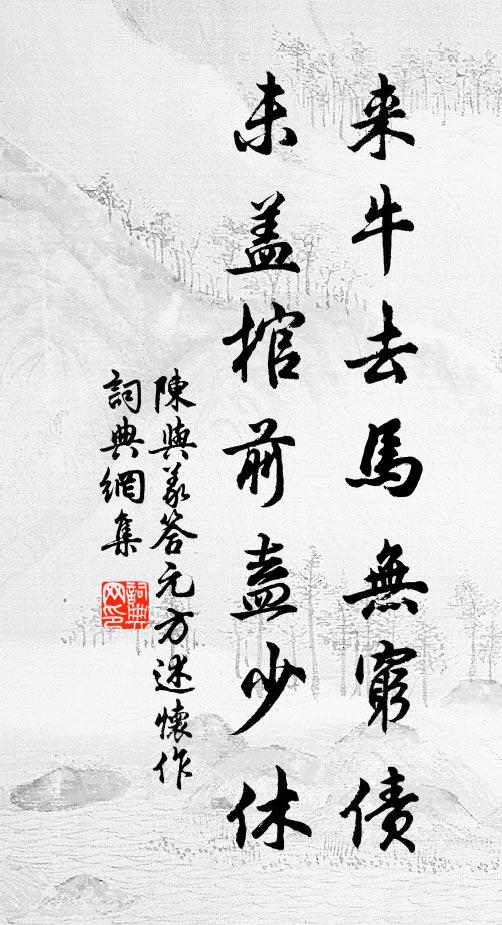 来牛去馬無窮債
未盖棺前盍少休
陳與義答元方述懷作
詞典網集
詞典网印